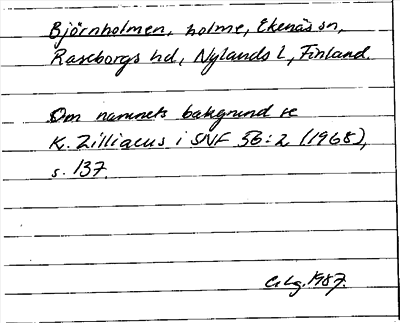 Björnholmen, holme, Ekenäs sn,
Raseborgs hd, Nylands l, Finland.
Om namnets bakgrund se
K. Zilliacus i SNF 56:2 (1968),
s. 137.
1987.